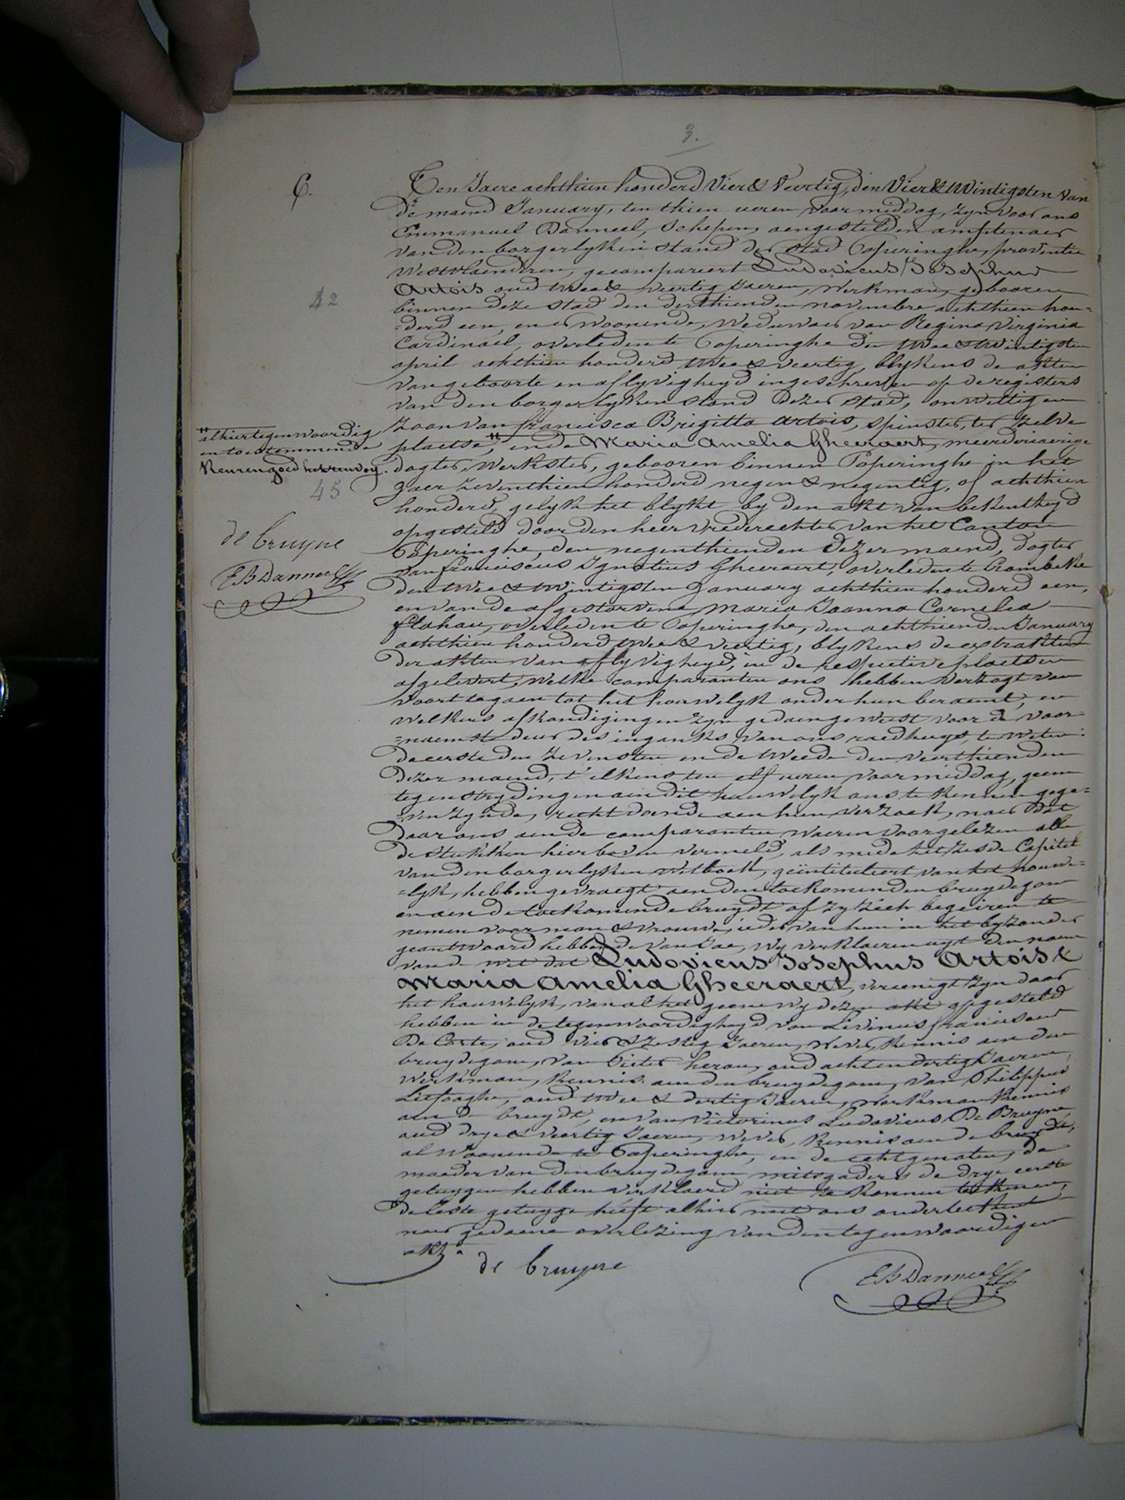 3.
6.
Ten Jaere achthien honderd vier & veertig, den vier & twintigsten van
de maend January, ten thien ueren voormiddag, zyn voor ons
Emmanuel Danneel, Schepen, aengestelden amptenaer
van den borgerlyken stand der stad Poperinghe, provintie
Westvlaenderen, gecompareert Ludovicus Josephus
Artois oud twee & veertig Jaeren, Werkman, gebooren
binnen deze stad den derthienden november achthien hon-
derd een, en er woonende, Weduwaer van Regina Virginia
Cardinael, overleden te Poperinghe den twee & twintigsten
april achthien honderd twee & veertig, blykens de akten
van geboorte en aflyvigheyd ingeschreven op de registers
van den borgerlyken stand dezer stad, onwettigen
zoon van francisca Brigitta Artois, spinster, ter zelve
plaetse, en de Maria Amelia Gheeraert, meerderjaerige
dogter, Werkster, gebooren binnen Poperinghe in het
Jaer zeventhien honderd negen & negentig, of achthien
honderd, gelyk het blykt by den akt van bekentheyd
opgesteld door den heer vrederechter van het Canton
Poperinghe, den negenthienden dezer maend, dogter
van franciscus Ignatius Gheeraert, overleden te Rombeke
den twee & twintigsten January achthien honderd een,
en van de afgestorvene Maria Joanna Cornelia
flahau, overleden te Poperinghe, den achthienden January
achthien honderd twee & veertig, blykens de extrakten
der akten van aflyvigheyd, in de respective plaetsen
afgelevert, welke comparanten ons hebben verzogt van
voort te gaen tot het houwelyk onder hun beraemt, en
welkers afkondigingen zyn gedaen geweest voor de voor-
naemste deur des ingangs van ons raedhuys, te weten:
de eerste den zevensten en de tweede den veerthienden
dezer maend, t'elkens ten elf ueren voormiddag, geene
tegenstrydingen aen dit houwelyk ons te kennen gege-
ven zynde, recht doende aen hun verzoek, naer dat
door ons aen de comparanten waeren voorgelezen alle
de stukken hierboven vermeld, als mede het zesde Capitel
van den borgerlyken Wetboek, geïntituleert van het houwe-
lyk, hebben gevraegt aen den toekomenden bruydegom
en aen de toekomende bruydt of zy zich begeiren te
nemen voor man & vrouwe, ieder van hun in het byzonder
geantwoord hebbende van Jae, wy verklaeren uyt den naem
van de wet dat Ludovicus Josephus Artois &
Maria Amelia Gheeraert, vereenigt zyn door
het houwelyk, van al het geene wy dezen akt opgesteld
hebben in de tegenwoordigheyd van Livinus franciscus
De Coste, oud vier & zestig Jaeren, Wever, kennis aen den
bruydegom, van Pieter heron, oud acht en dertig Jaeren,
Werkman, kennis aen den bruydegom, van Philippus
oud twee & dertig Jaeren, werkman kennis
aen de bruydt, en van Victorinus Ludovicus De Bruyne
oud drye & veertig Jaeren, Wever, kennis aen de bruydt,
al Woonende te Poperinghe, en de echtgenoten, de
moeder van den bruydegom mitsgaders de drye eerste
getuygen hebben verklaerd niet te konnen teekenen,
de leste getuyge heeft alhier met ons onderteekent
naer gedaene overlezing van den tegenwoordigen
akt.
de bruyne
E B Danneel
42
alhier tegenwoordig
en toestemmende
45
de bruyne
E B Danneel